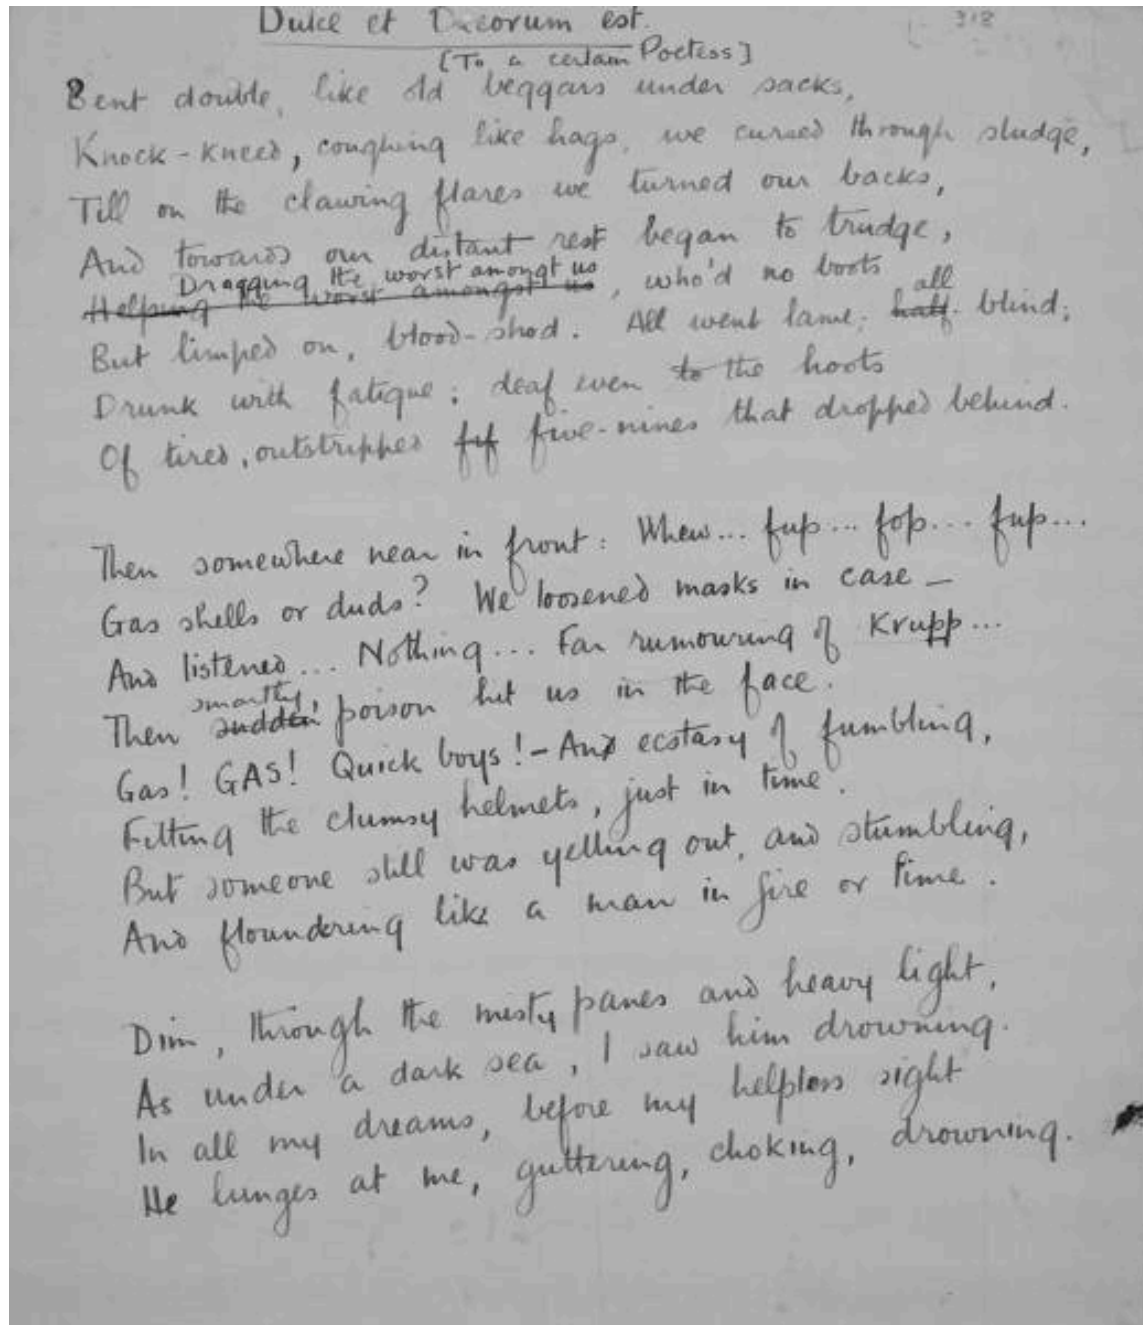 Dulce et Decorum est.
318
[To a certain Poetess]
Bent double, like old beggars under sacks,
Knock-kneed, coughing like hags, we cursed through sludge,
Till on the clawing flares we turned our backs,
And towards our distant rest began to trudge,
Dragging the worst amongt us
Helping the worst amongst us, who'd no boots
all
But limped on, blood-shod. All went lame; half- blind;
Drunk with fatigue; deaf even to the hoots
Of tired, outstripped fif five-nines that dropped behind.
Then somewhere near in front: Whew... fup... fop... fup...
Gas shells or duds? We loosened masks in case —
And listened... Nothing... Far rumouring of Krupp...
smartly,
Then sudden poison hit us in the face.
Gas! GAS! Quick boys! — An ecstasy of fumbling,
Fitting the clumsy helmets, just in time.
But someone still was yelling out, and stumbling,
And floundering like a man in fire or lime.
Dim, through the misty panes and heavy light,
As under a dark sea, I saw him drowning.
In all my dreams, before my helpless sight
He lunges at me, guttering, choking, drowning.